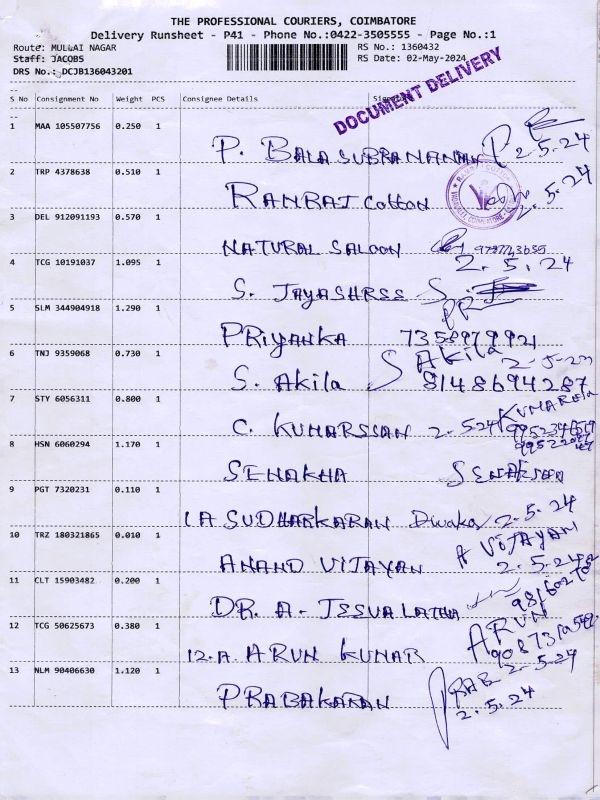 THE PROFESSIONAL COURIERS, COIMBATORE
Delivery Runsheet - P41 - Phone No.:0422-3505555 - Page No.:1
Route: MULLAI NAGAR RS No.: 1360432
Staff: JACOBS RS Date: 02-May-2024
DRS No.: DCJB136043201
DOCUMENT DELIVERY
S No Consignment No Weight PCS Consignee Details
1 MAA 105507756 0.250 1
P. BALASUBRANANAN 2-5.24
2 TRP 4378638 0.510 1
RANRAJ cotton 2.5.24
3 DEL 912091193 0.570 1
NATURAL SALOON
4 TCG 10191037 1.095 1 2.5.24
S. JAYASHREE S.
5 SLM 344904918 1.290 1
PRIYANKA 7358979921
6 TNJ 9359068 0.730 1 S AKila
S. Akila 8148694287
7 STY 6056311 0.800 1
C. KUMARSSAN 2-5.24
8 HSN 6060294 1.170 1
SENAKHA
9 PGT 7320231 0.110 1
1A SUDHARKARAN 2-5.24
10 TRZ 180321865 0.010 1 A VIJAYAN
ANAND VIJAYAN 2-5.24
11 CLT 15903482 0.200 1
DR. A- JESVALATHA
12 TCG 50625673 0.380 1 ARUN
12.A. ARUN KUNAR 2-5.24
13 NLM 90406630 1.120 1
PRABAKARAN 2.5.24